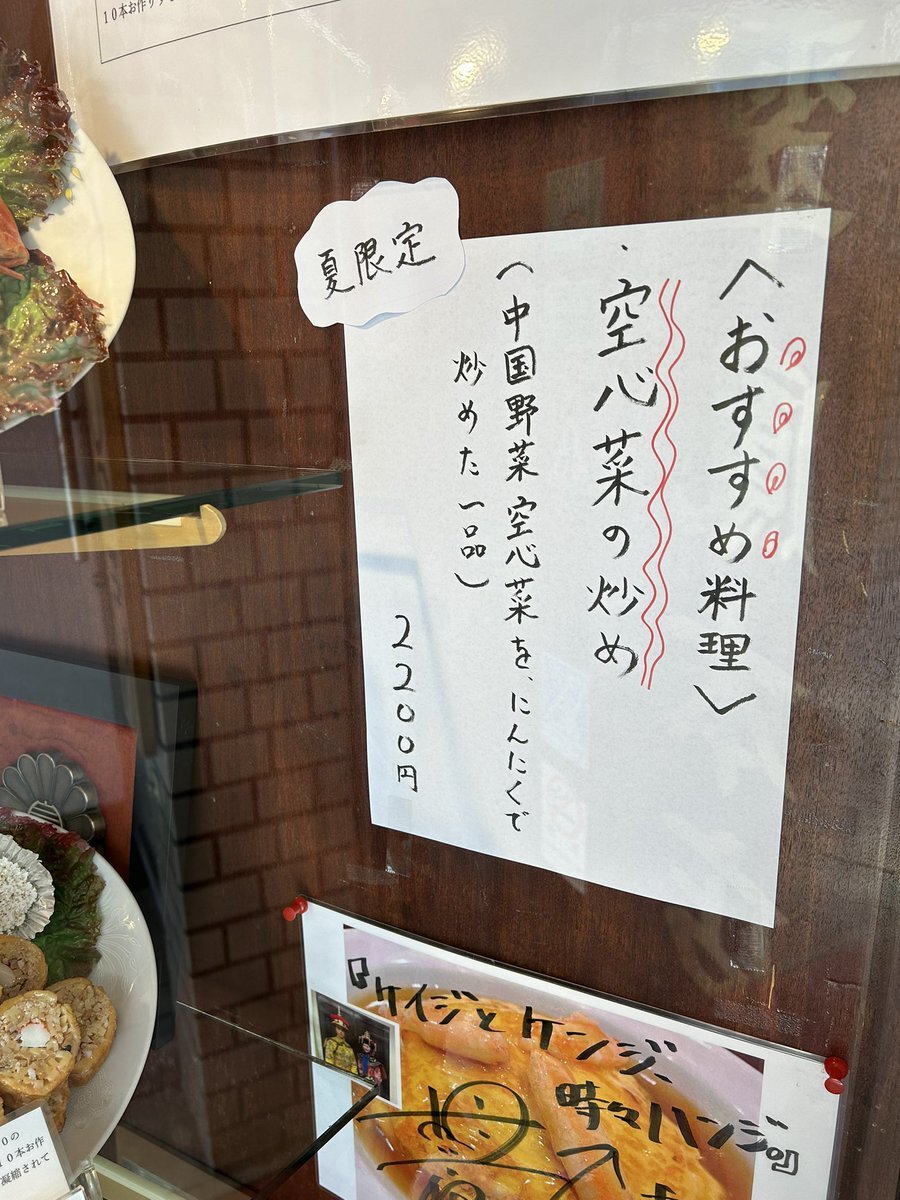 10本お作りする
夏限定
〈おすすめ料理〉
空心菜の炒め
(中国野菜空心菜を、にんにくで
炒めた一品)
2200円
『ケイジとケンジ、
時々ハンジ。』
10本お作
凝縮されて